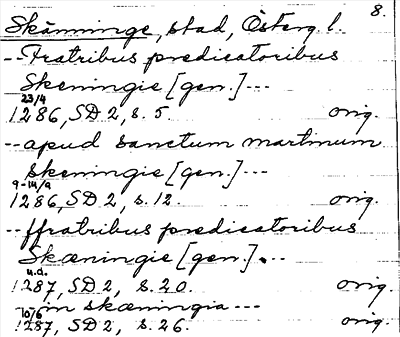 8.
Skänninge, stad, Österg. l.
-- Fratribus predicatoribus
Skeningie [gen.] ---
23/4
1286, SD 2, s. 5. orig.
-- apud sanctum martinum
skeningie [gen.] ---
9-14/9
1286, SD 2, s. 12. orig.
-- ffratribus predicatoribus
Skæningie [gen.] ---
u.d.
1287, SD 2, s. 20. orig.
-- in skæningia ---
10/6
1287, SD 2, s. 26. orig.